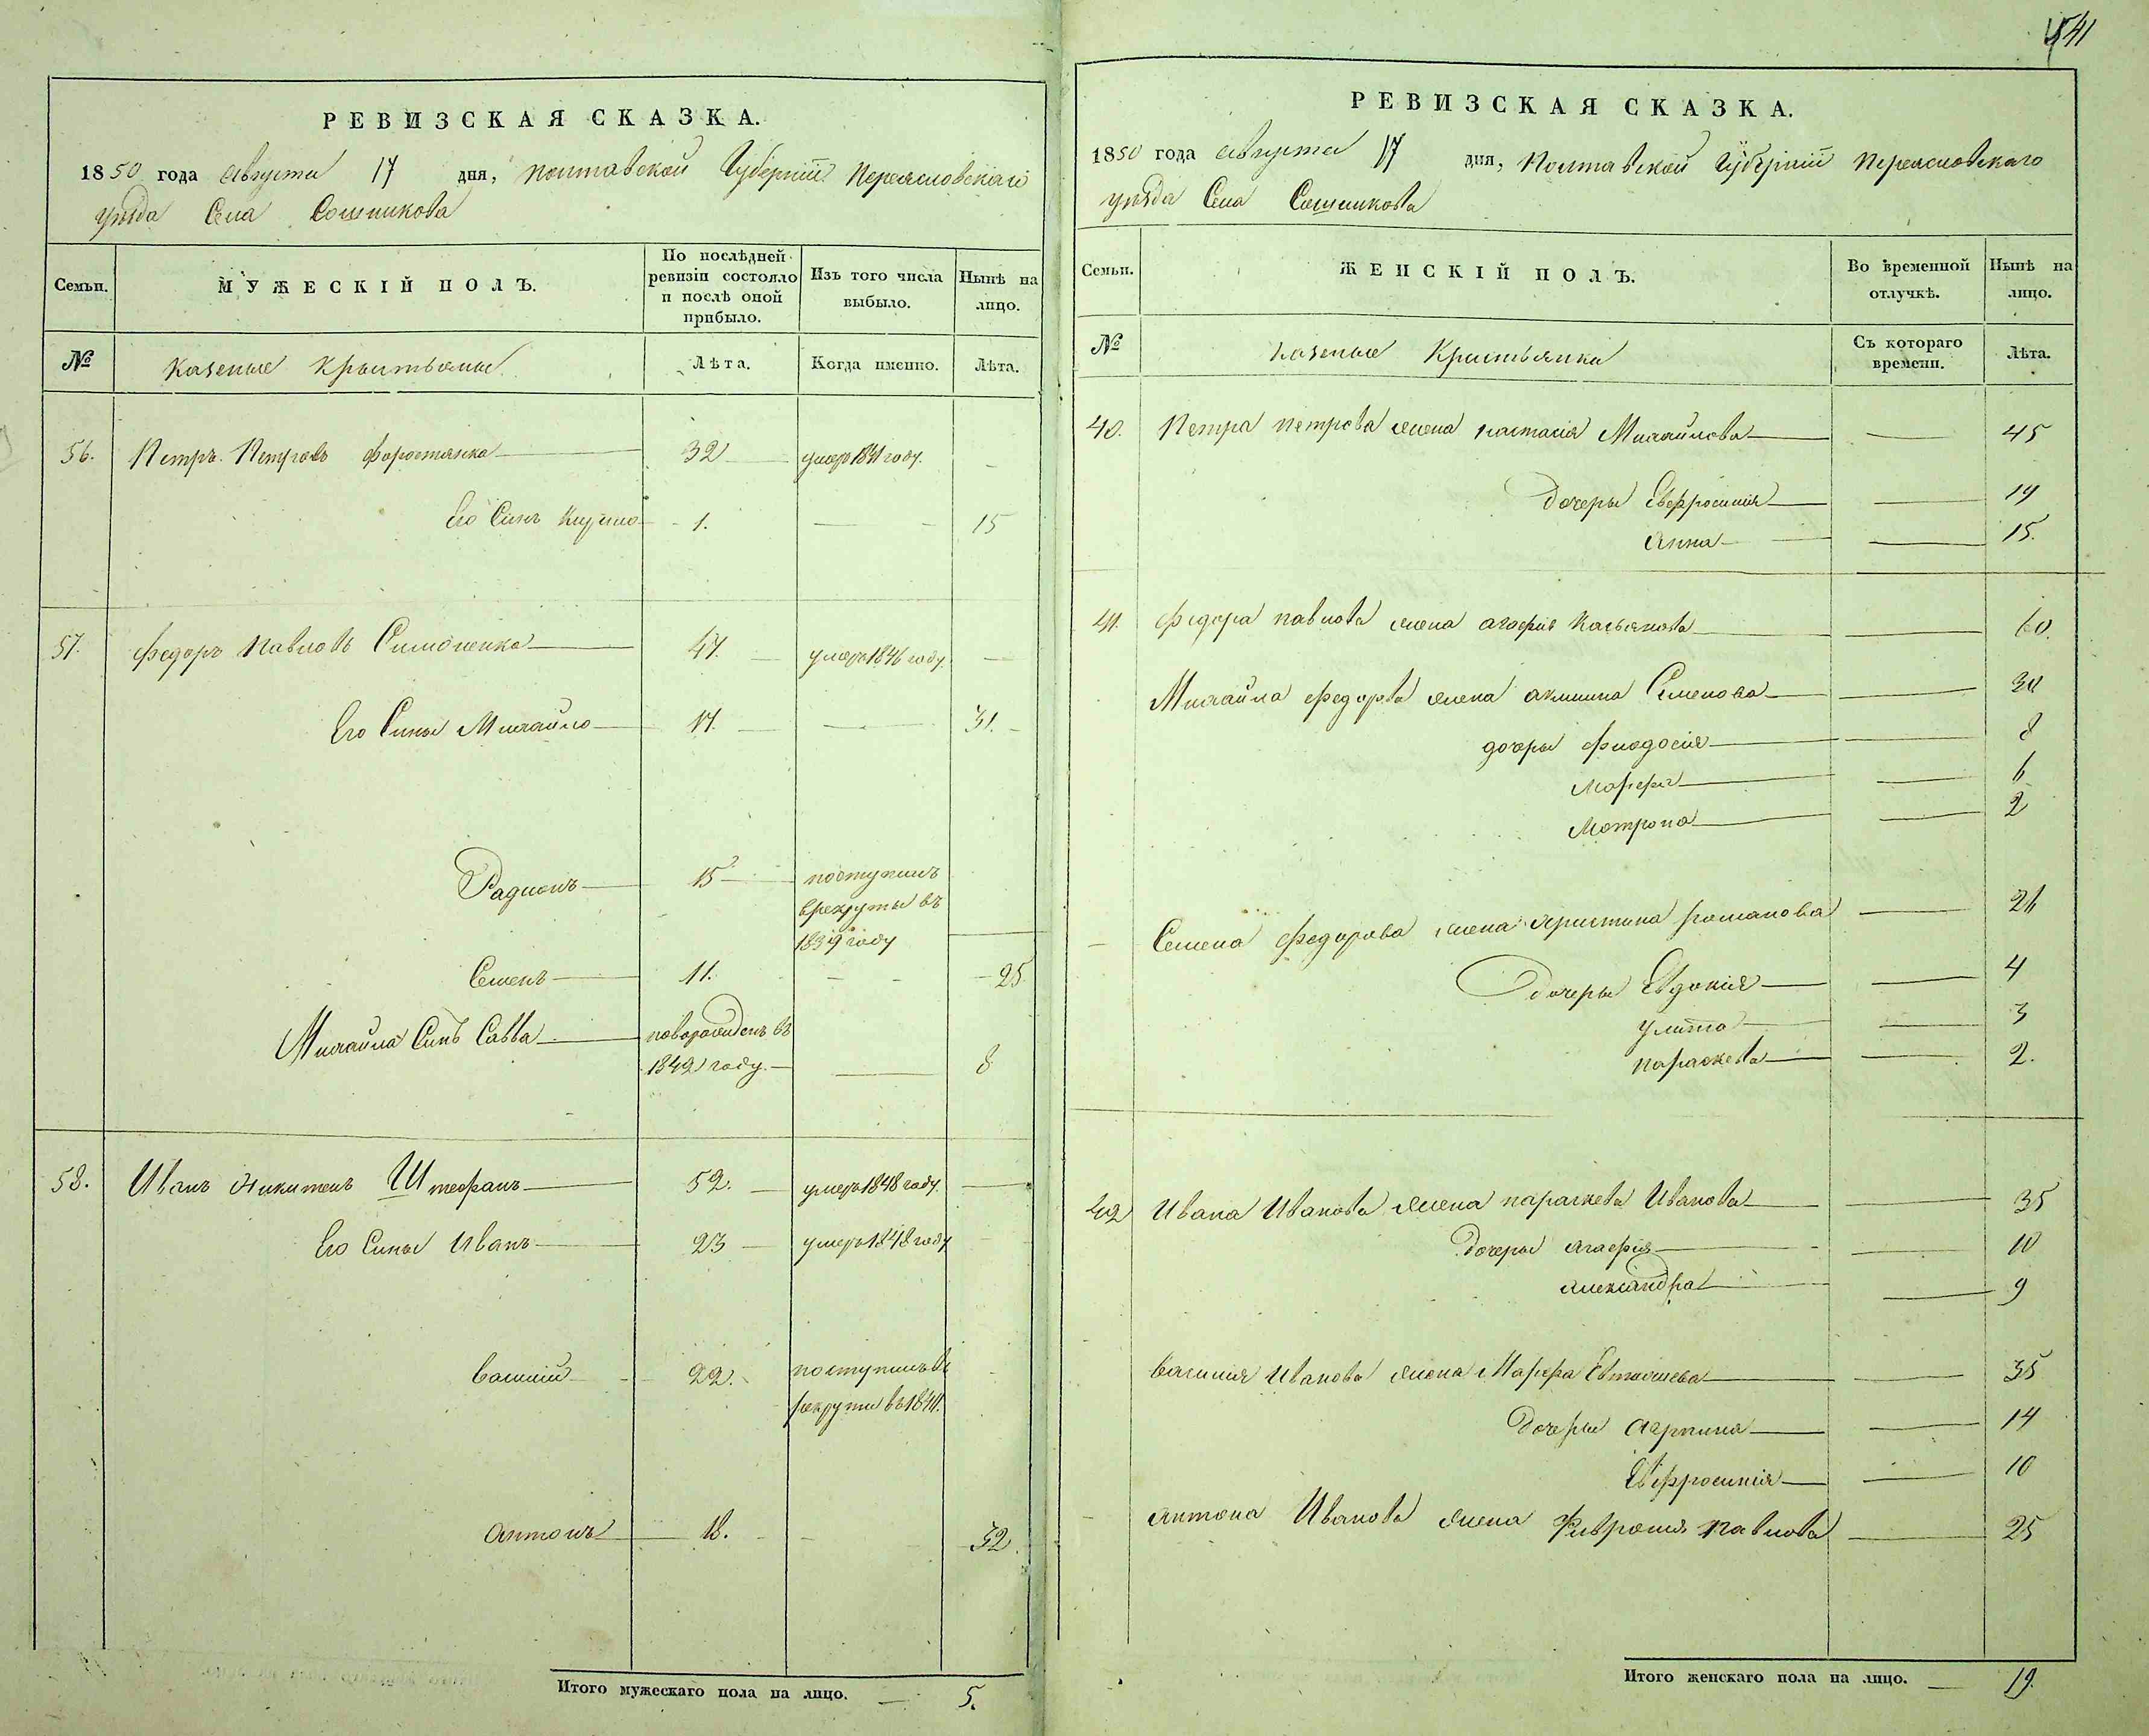 541
РЕВИЗСКАЯ СКАЗКА.
1850 года августа 17 дня, Полтавской Губернии Переясловскаго
уезда Села Сошникова
Семьи. МУЖЕСКІЙ ПОЛЪ. По послѣдней ревизіи состояло и послѣ оной прибыло. Изъ того числа выбыло. Нынѣ на лицо.
№ Казеные Крыстьяные Лѣта. Когда именно. Лѣта.
56. Петръ Петровъ Форостянко 32 умеръ 1841 году. —
Его Синъ Кирило 1. — 15
57. Федоръ Павловъ Симоненко 47. умеръ 1846 году. —
Его Сины Михайло 17. — 31.
Радионъ 15 поступилъ
врекруты въ
1839 году
Семенъ 11. — 25
Михайла Синъ Савва новорожденъ въ
1842 году — 8
58. Иванъ Никитенъ Штефанъ 52. умеръ 1848 году —
Его Сины Иванъ 23 умеръ 1848 году
Василий 22. поступилъ в
рекруты в 1844.
Антонъ 18. — 32
Итого мужескаго пола на лицо. — 5.
РЕВИЗСКАЯ СКАЗКА.
1850 года августа 17 дня, Полтавской Губернии Переясловскаго
уезда Села Сошникова
Семьи. ЖЕНСКІЙ ПОЛЪ. Во временной отлучкѣ. Нынѣ на лицо.
№ Казеные Крыстьянки Съ котораго времени. Лѣта.
40. Петра Петрова жена настасия Михайлова — 45
дочеры Евфросиния — 19
Анна — 15.
41. Федора Павлова жена агафия Касьянова — 60.
Михайла Федорва жена акилина Семенова — 30
дочеры Фиодосия — 8
Марфа — 6
Мотрона — 2
Семена Федорова жена христина романова — 26
дочеры Евдокия — 4
улита — 3
параскева — 2.
42 Ивана Иванова жена параскева Иванова — 35
дочеры агафия — 10
александра — 9
василия Иванова жена Марфа — 35
дочеры агрипина — 14
Евфросиния — 10
антона Иванова жена Фиврония Павлова — 25
Итого женскаго пола на лицо. — 19.